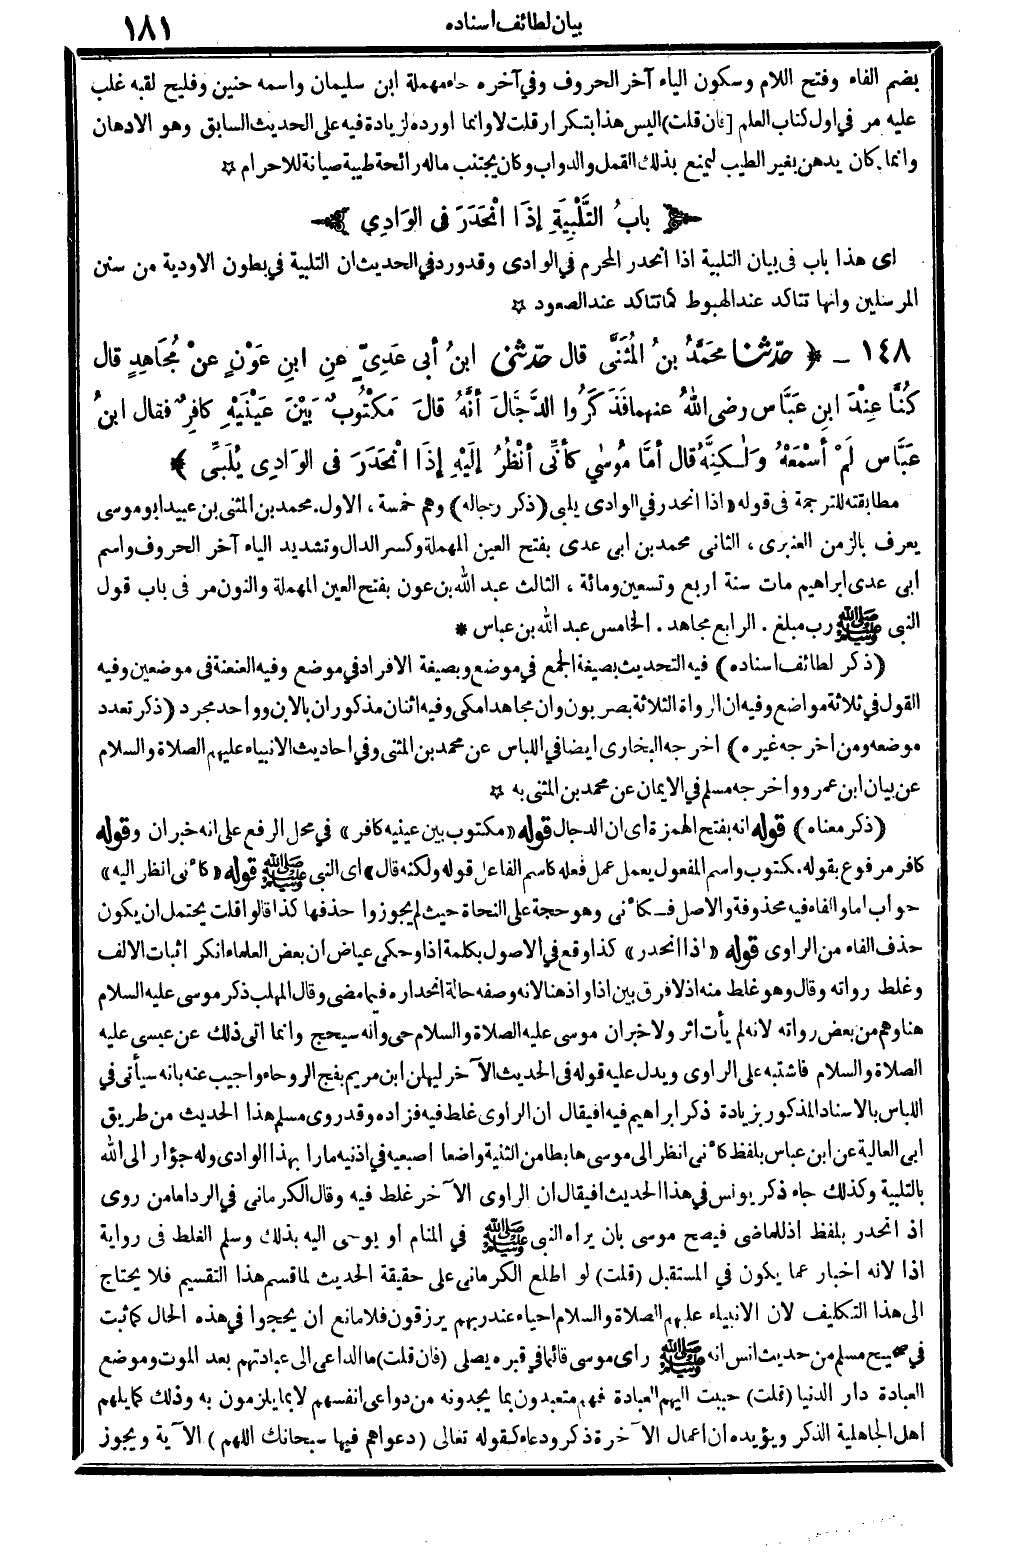 بيان لطائف اسناده
١٨١
بضم الفاء وفتح اللام وسكون الياء آخر الحروف وفي آخره حاء مهملة ابن سليمان واسمه حنين وفليح لقبه غلب
عليه مر في اول كتاب العلم [فان قلت) اليس هذا بتكرار قلت لا وانما اورده لزيادة فيه على الحديث السابق وهو الادهان
وانما كان يدهن بغير الطيب ليمنع بذلك القمل والدواب وكان يجتنب ماله رائحة طيبة صيانة للاحرام ☆
﴿ بابُ التَّلْبِيَةِ إِذَا انْحَدَرَ فى الوَادِي ﴾
اى هذا باب فى بيان التلبية اذا انحدر المحرم في الوادى وقد ورد في الحديث ان التلبية في بطون الاودية من سنن
المرسلين وانها تتاكد عند الهبوط كما تتاكد عند الصعود ☆
١٤٨ ـ ﴿ حدّثنا محَمَّدُ بنُ المُثَنَّى قال حدّثنى ابنُ أبى عَدِىّ عنِ ابنِ عَوْنٍ عنْ مُجَاهِدٍ قال
كُنَّا عِنْدَ ابنِ عبَّاس رضى اللهُ عنهما فَذَ كَرُوا الدَّجَّالَ أنَّهُ قالَ مَكْتُوبٌ بَيْنَ عَيْنَيْهِ كافِرٌ فقال ابنُ
عبَّاس لَمْ أسْمَعْهُ وَلٰكِنَّهُ قال أمَّا مُوسٰي كأنِّى أنْظُرُ إلَيْهِ إذَا انْحَدَرَ فى الوَادِى يُلَبِّى ﴾
مطابقته للترجمة فى قوله «اذا انحدر في الوادى يلبى (ذكر رجاله) وهم خمسة ، الاول. محمد بن المثنى بن عبيد ابو موسى
يعرف بالزمن العنبرى ، الثانى محمد بن ابى عدى بفتح العين المهملة وكسر الدال وتشديد الياء آخر الحروف واسم
ابى عدى ابراهيم مات سنة اربع وتسعين ومائة ، الثالث عبد الله بن عون بفتح العين المهملة والنون مر فى باب قول
النبى ﷺ رب مبلغ . الرابع مجاهد . الخامس عبد الله بن عباس *
(ذكر لطائف اسناده) فيه التحديث بصيغة الجمع في موضع وبصيغة الافراد في موضع وفيه العنعنة فى موضعين وفيه
القول في ثلاثة مواضع وفيه ان الرواة الثلاثة بصريون وان مجاهدا مكى وفيه اثنان مذكوران بالابن وواحد مجرد (ذكر تعدد
موضعه ومن اخرجه غيره) اخرجه البخارى ايضا في اللباس عن محمد بن المثنى وفي احاديث الانبياء عليهم الصلاة والسلام
عن بيان ابن عمرو واخرجه مسلم في الايمان عن محمد بن المثنى به ☆
(ذكر معناه) قوله انه بفتح الهمزة اى ان الدجال قوله «مكتوب بين عينيه كافر» في محل الرفع على انه خبران وقوله
كافر مرفوع بقوله مكتوب واسم المفعول يعمل عمل فعله كاسم الفاعل قوله ولكنه قال» اى النبى ﷺ قوله «كأنى انظر اليه»
جواب اما والفاء فيه محذوفة والاصل فكأنى وهو حجة على النحاة حيث لم يجوزوا حذفها كذا قالوا قلت يحتمل ان يكون
حذف الفاء من الراوى قوله «اذا انحدر» كذا وقع في الاصول بكلمة اذا وحكى عياض ان بعض العلماء انكر اثبات الالف
وغلط رواته وقال وهو غلط منه اذ لا فرق بين اذا واذ هنا لانه وصفه حالة انحداره فيما مضى وقال المهلب ذكر موسى عليه السلام
هنا وهم من بعض رواته لانه لم يأت اثر ولا خبر ان موسى عليه الصلاة والسلام حى وانه سيحج وانما اتى ذلك عن عيسى عليه
الصلاة والسلام فاشتبه على الراوى ويدل عليه قوله فى الحديث الآخر ليهلن ابن مريم بفج الروحاء واجيب عنه بانه سيأتى في
اللباس بالاسناد المذكور بزيادة ذكر ابراهيم فيه افيقال ان الراوى غلط فيه فزاده وقد روى مسلم هذا الحديث من طريق
ابى العالية عن ابن عباس بلفظ كأنى انظر الى موسى هابطا من الثنية واضعا اصبعيه في اذنيه مارا بهذا الوادى وله جؤار الى الله
بالتلبية وكذلك جاء ذكر يونس في هذا الحديث افيقال ان الراوى الآخر غلط فيه وقال الكرمانى في الرد اما من روى
اذ انحدر بلفظ اذ للماضى فيصح موسى بان يراه النبى ﷺ في المنام او يوحى اليه بذلك وسلم الغلط فى رواية
اذا لانه اخبار عما يكون في المستقبل (قلت) لو اطلع الكرمانى على حقيقة الحديث لما قسم هذا التقسيم فلا يحتاج
الى هذا التكليف لان الانبياء عليهم الصلاة والسلام احياء عند ربهم يرزقون فلا مانع ان يحجوا في هذه الحال كما ثبت
في صحيح مسلم من حديث انس انه ﷺ راى موسى قائما في قبره يصلى (فان قلت) ما الداعى الى عبادتهم بعد الموت وموضع
العبادة دار الدنيا (قلت) حببت اليهم العبادة فهم متعبدون بما يجدونه من دواعى انفسهم لا بما يلزمون به وذلك كما يلهم
اهل الجاهلية الذكر ويؤيده ان اعمال الآخرة ذكر ودعاء كقوله تعالى (دعواهم فيها سبحانك اللهم) الآية ويجوز